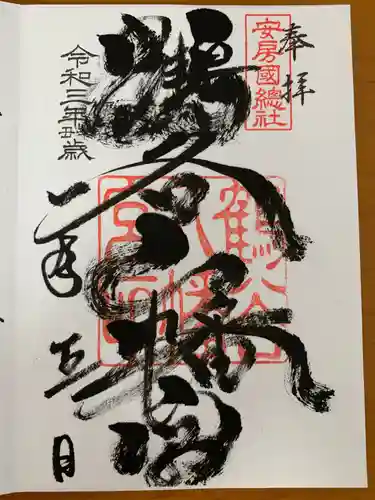 奉拝
安房國總社
鶴谷八幡宮
鶴谷八幡宮
令和三年丑歳
一月五日